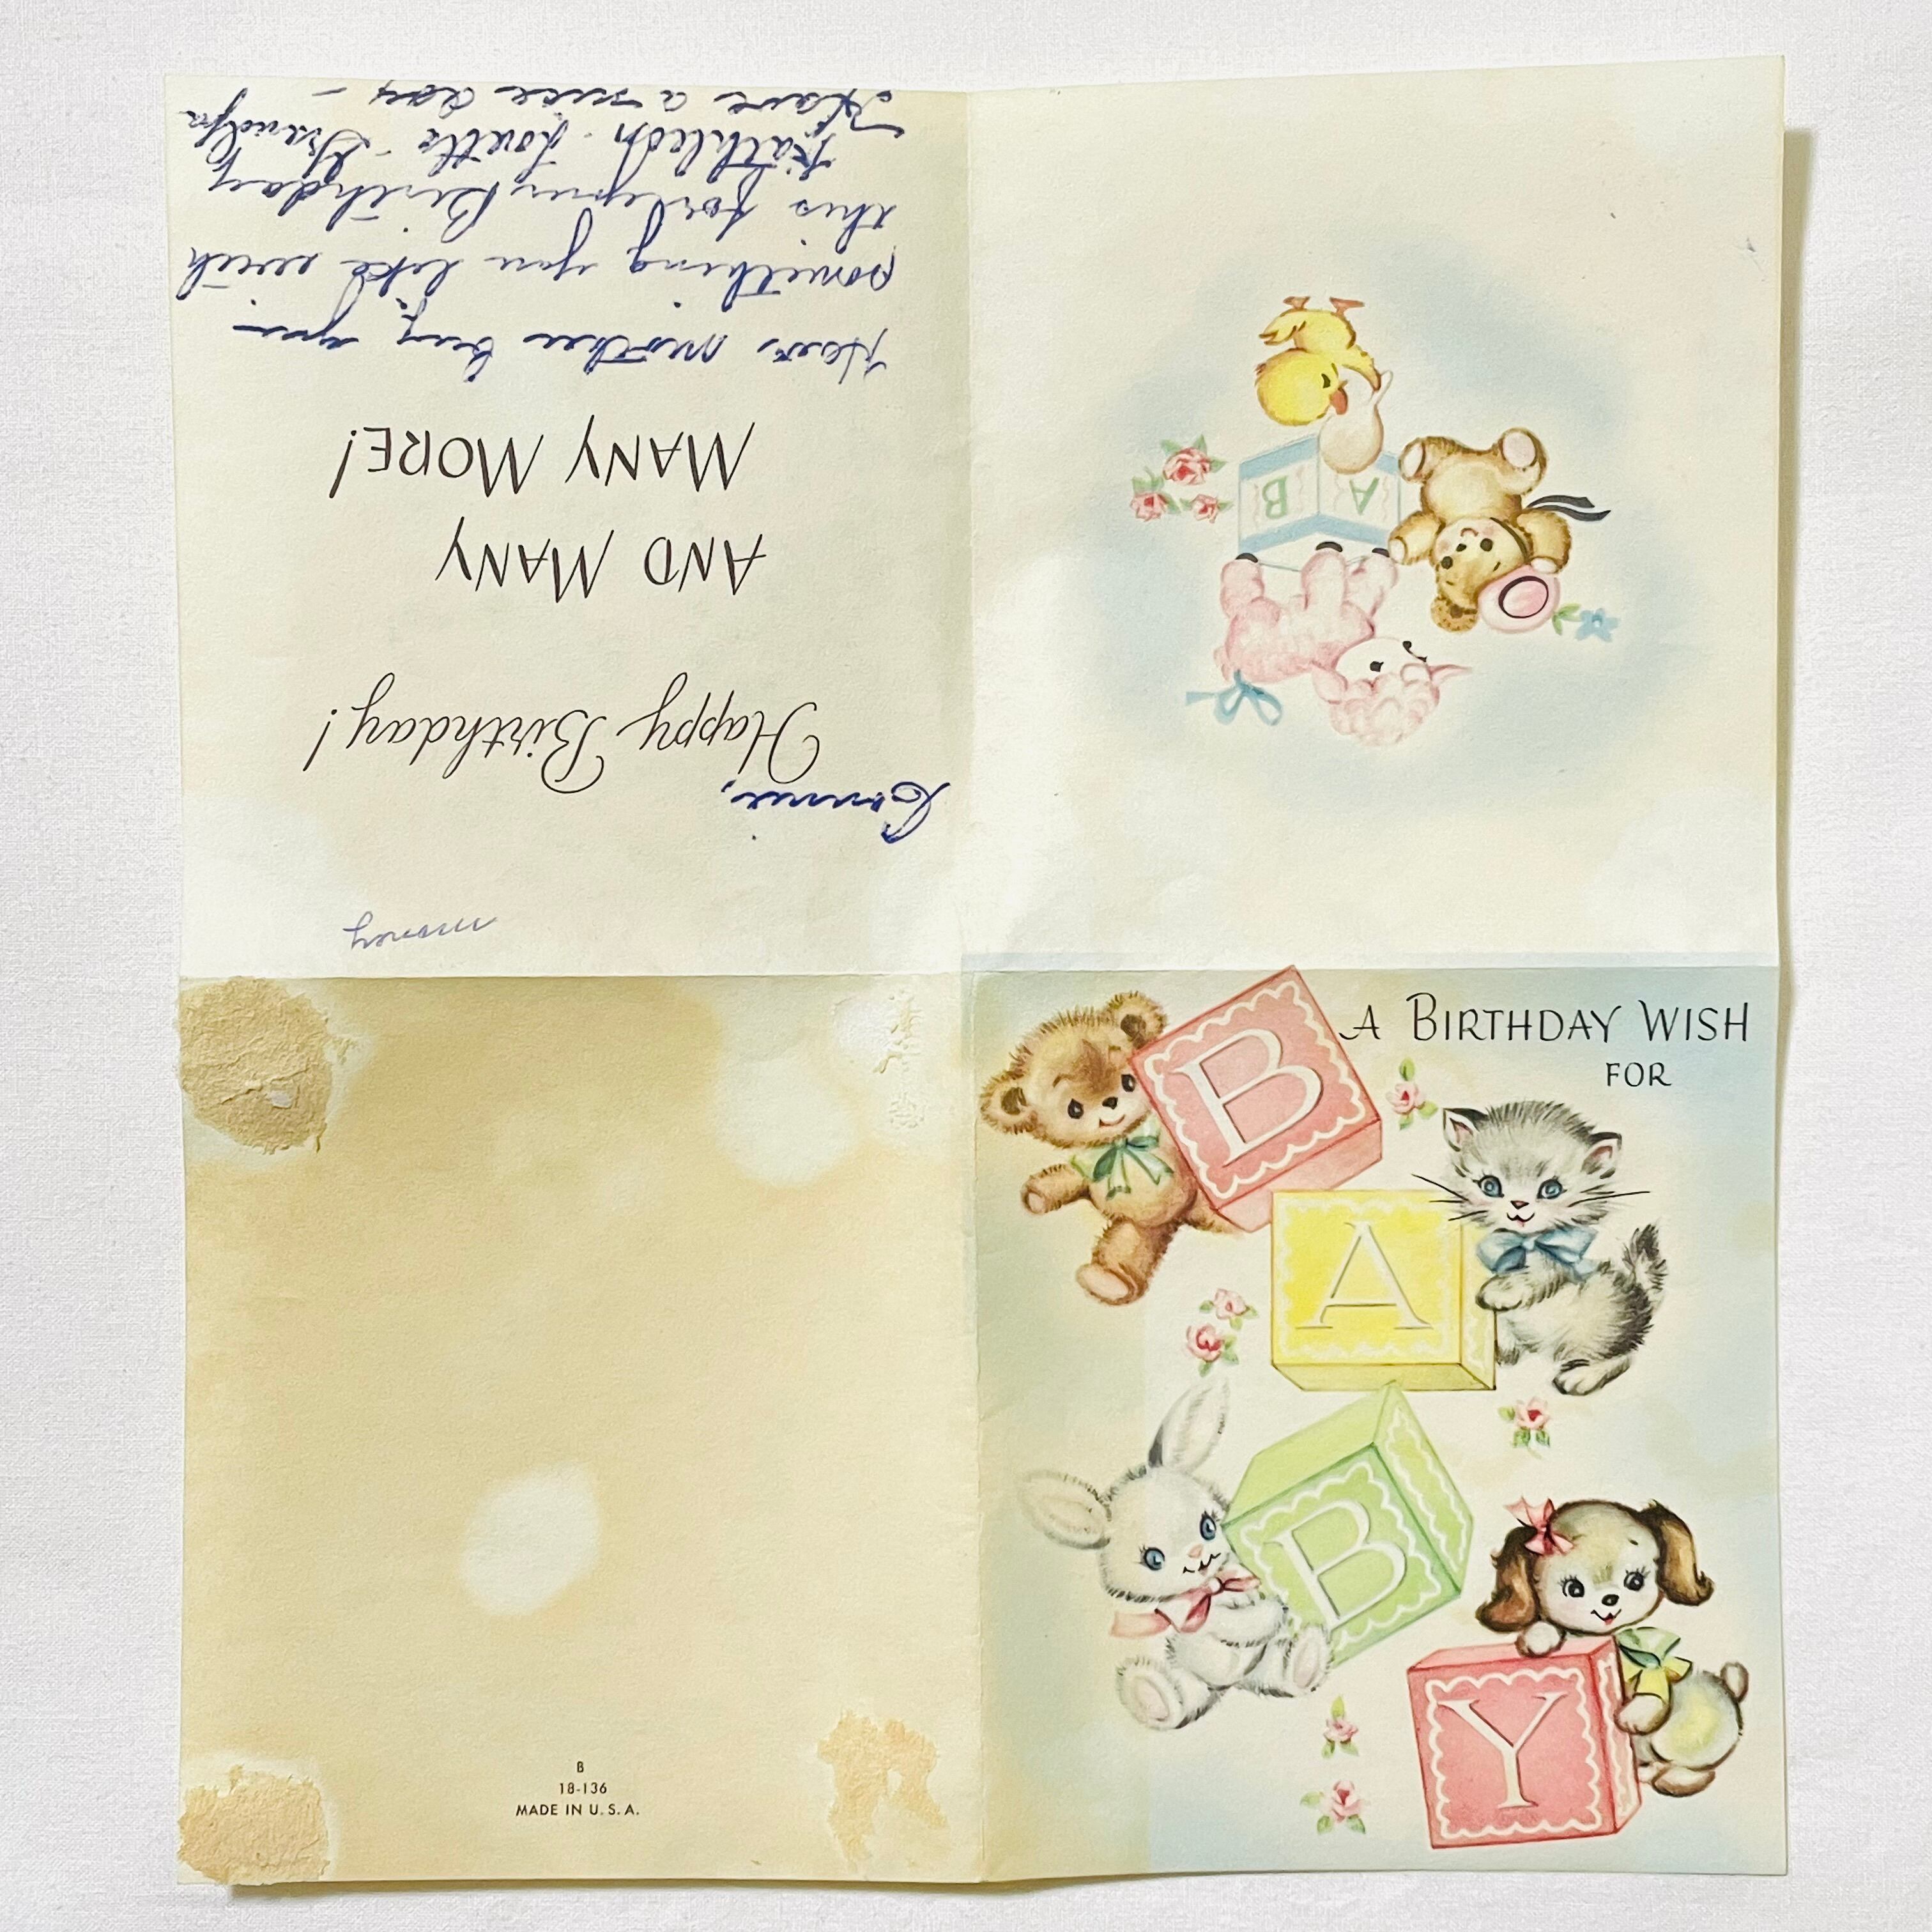 A BIRTHDAY WISH
FOR
B
A
B
Y
B
18-136
MADE IN U.S.A.
A
B
money
Connie,
Happy Birthday!
AND MANY
MANY MORE!
Have mother buy you
something you like with
this for your Birthday
Kathleen Grandpa
Have a nice day -